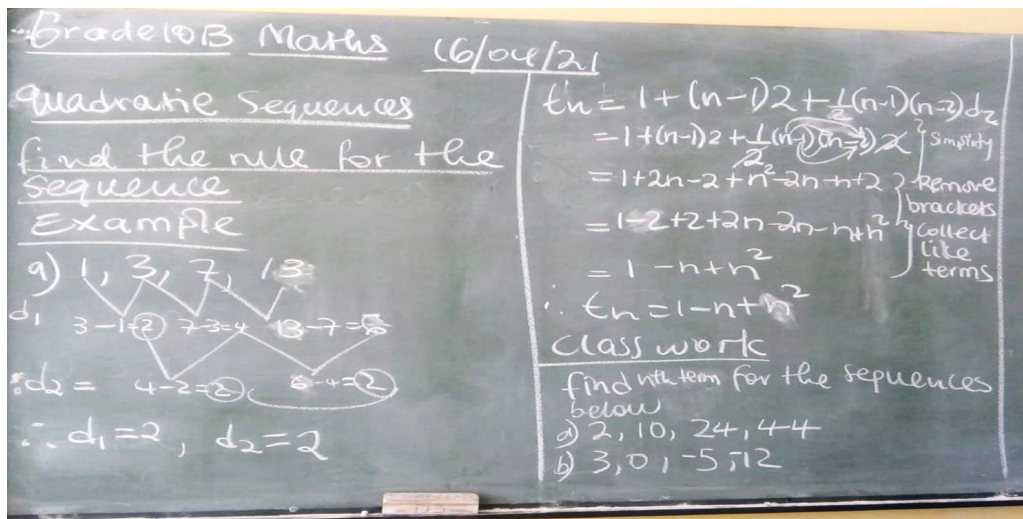 Grade 10B Maths 16/04/21
Quadratic Sequences
find the rule for the
sequence
Example
a) 1, 3, 7, 13
d₁ 3-1=2 7-3=4 13-7=6
∴d₂ = 4-2=2 6-4=2
∴ d₁=2, d₂=2
tn = 1+(n-1)2+½(n-1)(n-2)d₂
= 1+(n-1)2+½(n-1)(n-2)2 } Simplify
= 1+2n-2+n²-2n-n+2 } Remove
brackets
= 1-2+2+2n-2n-n+n² } collect
like
terms
= 1-n+n²
∴ tn = 1-n+n²
Class work
find nth term for the sequences
below
a) 2, 10, 24, 44
b) 3, 0, -5, -12